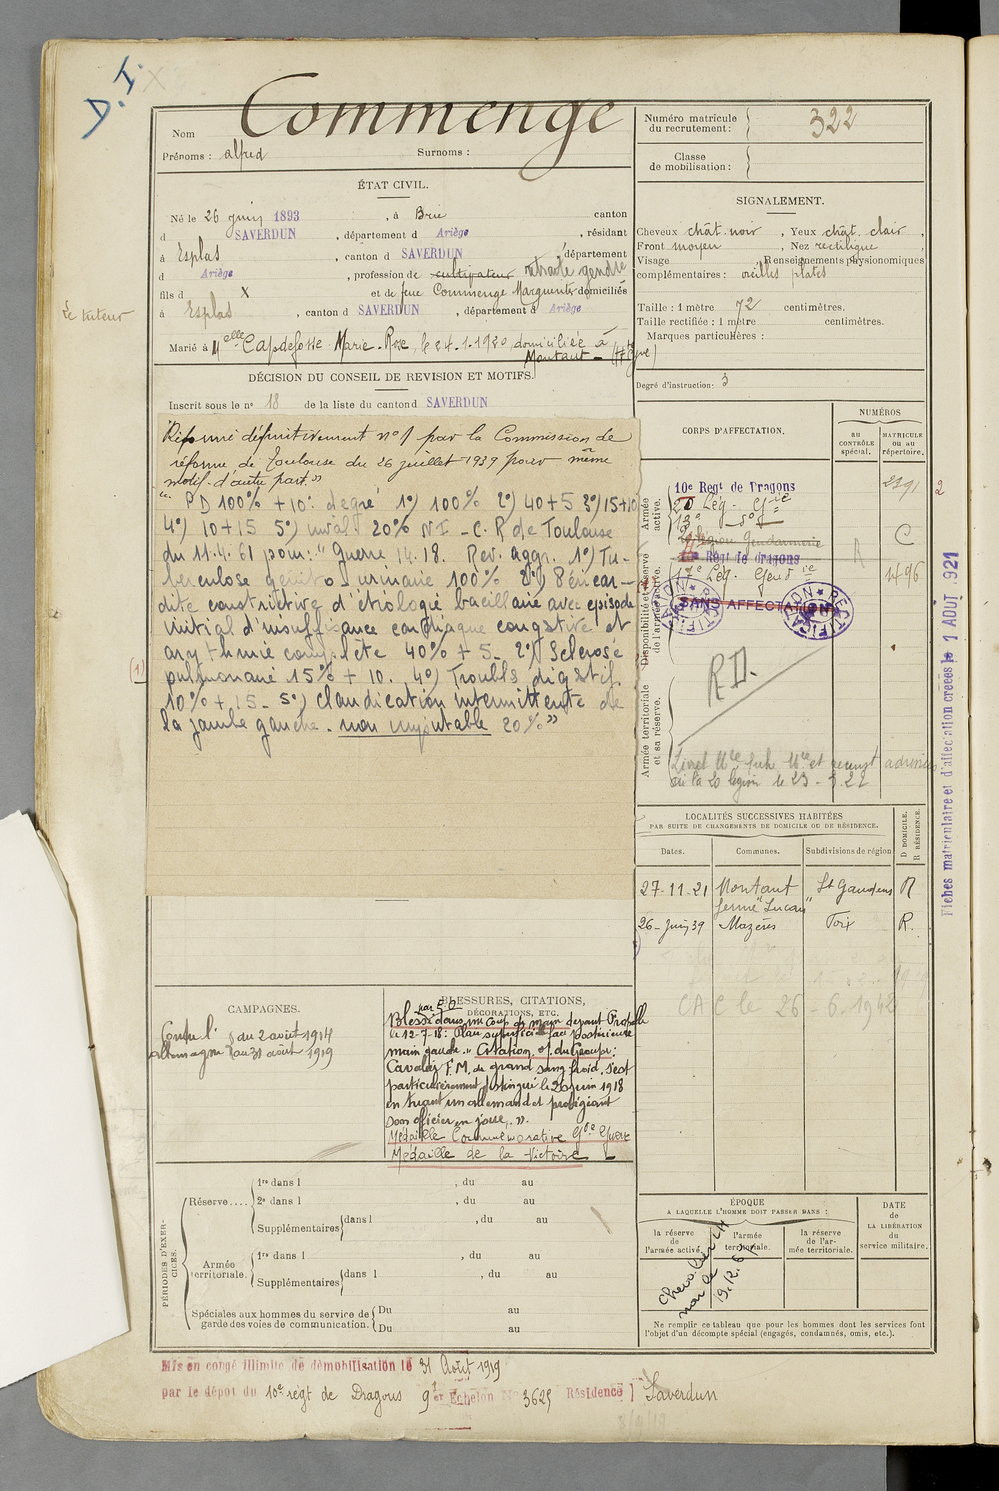 D.I. X
Nom Commenge
Prénoms : alfred Surnoms :
Numéro matricule
du recrutement : 322
Classe
de mobilisation :
ÉTAT CIVIL.
Né le 26 juin 1893, à Brie canton
d SAVERDUN, département d Ariège, résidant
à Esplas, canton d SAVERDUN, département
d Ariège, profession de cultivateur retraité gendre
fils d X et de feue Commenge Marguerite domiciliés
à Esplas, canton d SAVERDUN, département d Ariège
Le tuteur
Marié à Melle Capdefosse Marie-Rose, le 24.1.1920 domiciliée à
Montaut - (Hte Gne)
SIGNALEMENT.
Cheveux chât. noir, Yeux chât. clair,
Front moyen, Nez rectiligne,
Visage Renseignements physionomiques
complémentaires : oreilles plates
Taille : 1 mètre 72 centimètres.
Taille rectifiée : 1 mètre centimètres.
Marques particulières :
Degré d'instruction : 3
DÉCISION DU CONSEIL DE REVISION ET MOTIFS.
Inscrit sous le n° 18 de la liste du canton d SAVERDUN
Réformé définitivement n° 1 par la Commission de
réforme de Toulouse du 26 juillet 1939 pour même
motif d'autre part."
" PD 100% + 10° degré 1°) 100% 2°) 40+5 3°) 15+10
4°) 10+15 5°) inval. 20% NI - C.R de Toulouse
du 11.4.61 pour : "Guerre 14.18. Rev. aggr. 1°) Tu-
berculose génito-urinaire 100% 2°) Péricar-
dite constrictive d'étiologie bacillaire avec épisode
initial d'insuffisance cardiaque congestive et
arythmie complète 40% + 5 - 2°) Sclérose
pulmonaire 15% + 10. 4°) Troubls digestif
10% + 15 - 5°) Claudication intermittente de
la jambe gauche. non imputable 20%"
(1)
CORPS D'AFFECTATION.
NUMÉROS
AU
CONTRÔLE
spécial.
MATRICULE
OU AU
répertoire.
Armée
active.
10e Regt de Dragons 2391 2
20 Lég. Gie
Légion Gendarmerie C
Disponibilité et réserve
de l'armée active.
Regt de dragons
Lég. Gend ie 1496
SANS AFFECTATION
RECTIFICATION
RECTIFICATION
R.D.
Armée territoriale
et sa réserve.
Livret Mle fiche Mle et
à la 20 légion le 23-3.22
Fiches matriculaire et d'affectation créées le 1 AOUT 1921
LOCALITÉS SUCCESSIVES HABITÉES
PAR SUITE DE CHANGEMENTS DE DOMICILE OU DE RÉSIDENCE.
Dates. Communes. Subdivisions de région D DOMICILE. R RÉSIDENCE.
27-11-21 Montaut St Gaudens R
ferme "Lucau"
26-Juin 39 Mazères Foix R.
CAC le 26-6.1942
CAMPAGNES.
Contre l' du 2 août 1914
Allemagne au 31 août 1919
BLESSURES, CITATIONS,
DÉCORATIONS, ETC.
par E.O
Blessé dans un coup de main devant
le 12-7-18 : Plaie superficielle face postérieure
main gauche." Citation o/ du Groupe :
Cavalier F.M. de grand sang froid, s'est
particulièrement distingué le 20 juin 1918
en tuant un allemand et protégeant
son officier en joue."
Médaille Commémorative Gde Guerre
Médaille de la Victoire
PÉRIODES D'EXER-
CICES.
Réserve....
1re dans l , du au
2e dans l , du au
Supplémentaires dans l , du au
Armée
territoriale.
1re dans l , du au
Supplémentaires dans l , du au
Spéciales aux hommes du service de
garde des voies de communication.
Du au
Du au
ÉPOQUE
A LAQUELLE L'HOMME DOIT PASSER DANS :
la réserve
de
l'armée active.
l'armée
territoriale.
la réserve
de l'ar-
mée territoriale.
DATE
de
LA LIBÉRATION
du
service militaire.
Ne remplir ce tableau que pour les hommes dont les services font
l'objet d'un décompte spécial (engagés, condamnés, omis, etc.).
Mis en congé illimité de démobilisation le 31 Août 1919
par le dépôt du 10e regt de Dragons 9e Echelon N° 3625 Résidence Saverdun